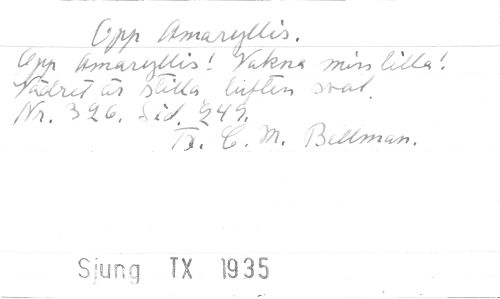 Opp Amaryllis.
Opp Amaryllis! Vakna min lilla!
Vädret är stilla, luften sval.
Nr. 326. Sid. 249.
Tx. C. M. Bellman.
Sjung TX 1935